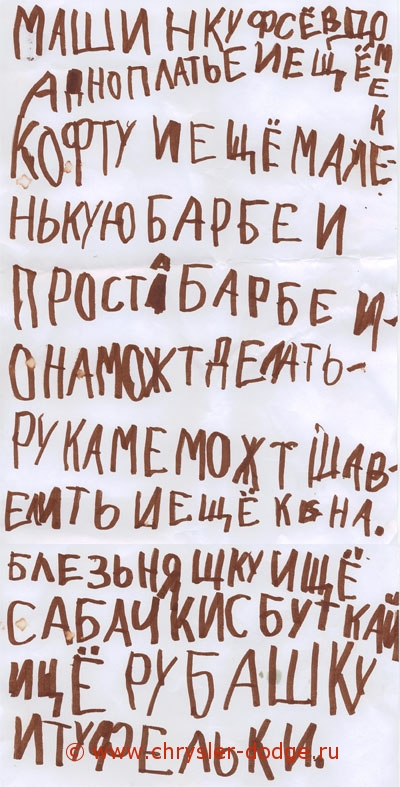 МАШИНКУ ФСЁ В ДО
МЕКЕ
АДНО ПЛАТЬЕ И ЕЩЁ
КОФТУ И ЕЩЁ МАЛЕ-
НЬКУЮ БАРБЕ И
ПРОСТА БАРБЕ И-
ОНА МОЖТ ДЕЛАТЬ-
РУКАМЕ МОЖТ ШАВ-
ЕЛИТЬ И ЕЩЁ КЕНА.
БЛЕЗЬНЯШКУ ИЩЁ
САБАЧКИ С БУТКАЙ
ИЩЁ РУБАШКУ
И ТУФЕЛЬКИ.
© www.chrysler-dodge.ru